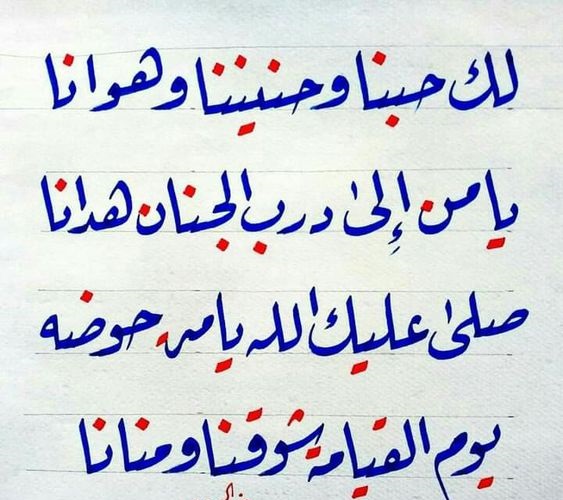 لك حبنا وحنيننا وهوانا
يا من إلى درب الجنان هدانا
صلى عليك الله يا من حوضه
يوم القيامة شوقنا ومنانا